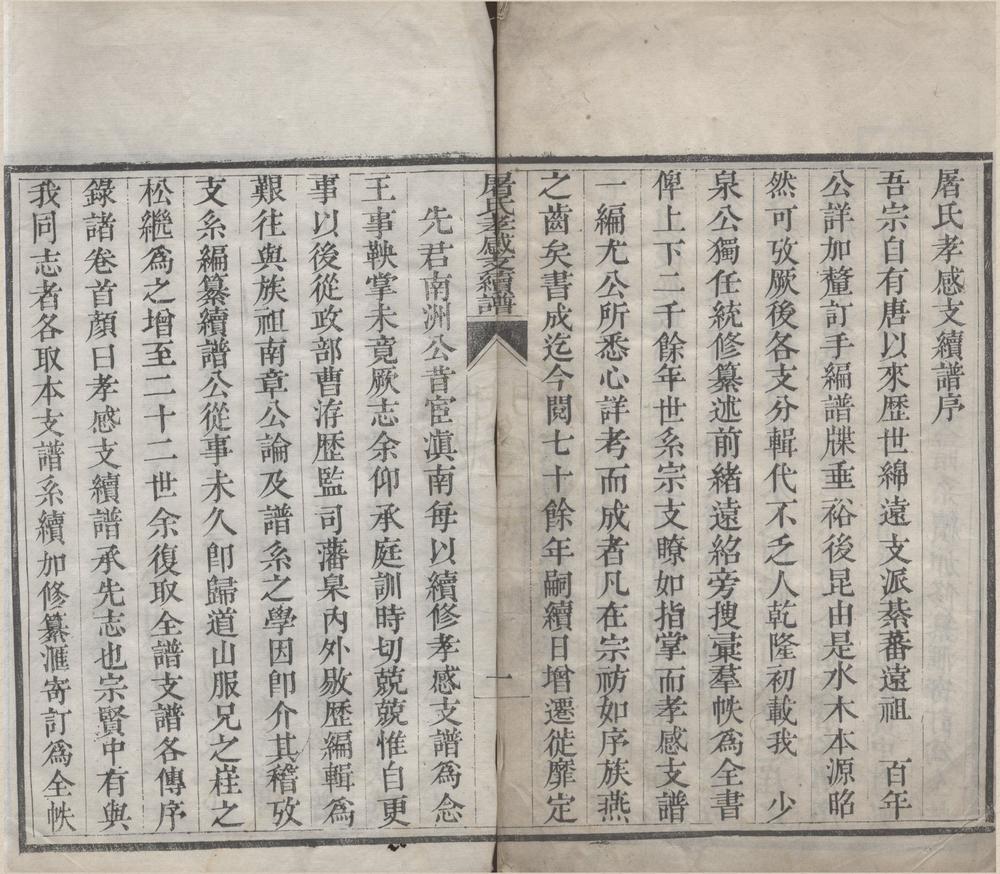 屠氏孝感支續譜序
吾宗自有唐以來歷世綿遠支派綦蕃遠祖 百年
公詳加釐訂手編譜牒垂裕後昆由是水木本源昭
然可攷厥後各支分輯代不乏人乾隆初載我 少
泉公獨任統修纂述前緒遠紹旁搜彙羣帙爲全書
俾上下二千餘年世系宗支瞭如指掌而孝感支譜
一編尤公所悉心詳考而成者凡在宗祊如序族燕
之齒矣書成迄今閱七十餘年嗣續日增遷徙靡定
屠氏孝感支續譜
一
先君南洲公昔宦滇南每以續修孝感支譜爲念
王事鞅掌未竟厥志余仰承庭訓時切兢兢惟自更
事以後從政部曹洊歷監司藩臬內外敭歷編輯爲
艱往與族祖南章公論及譜系之學因卽介其稽攷
支系編纂續譜公從事未久卽歸道山服兄之崖之
松繼爲之增至二十二世余復取全譜支譜各傳序
錄諸卷首顏曰孝感支續譜承先志也宗賢中有與
我同志者各取本支譜系續加修纂滙寄訂爲全帙